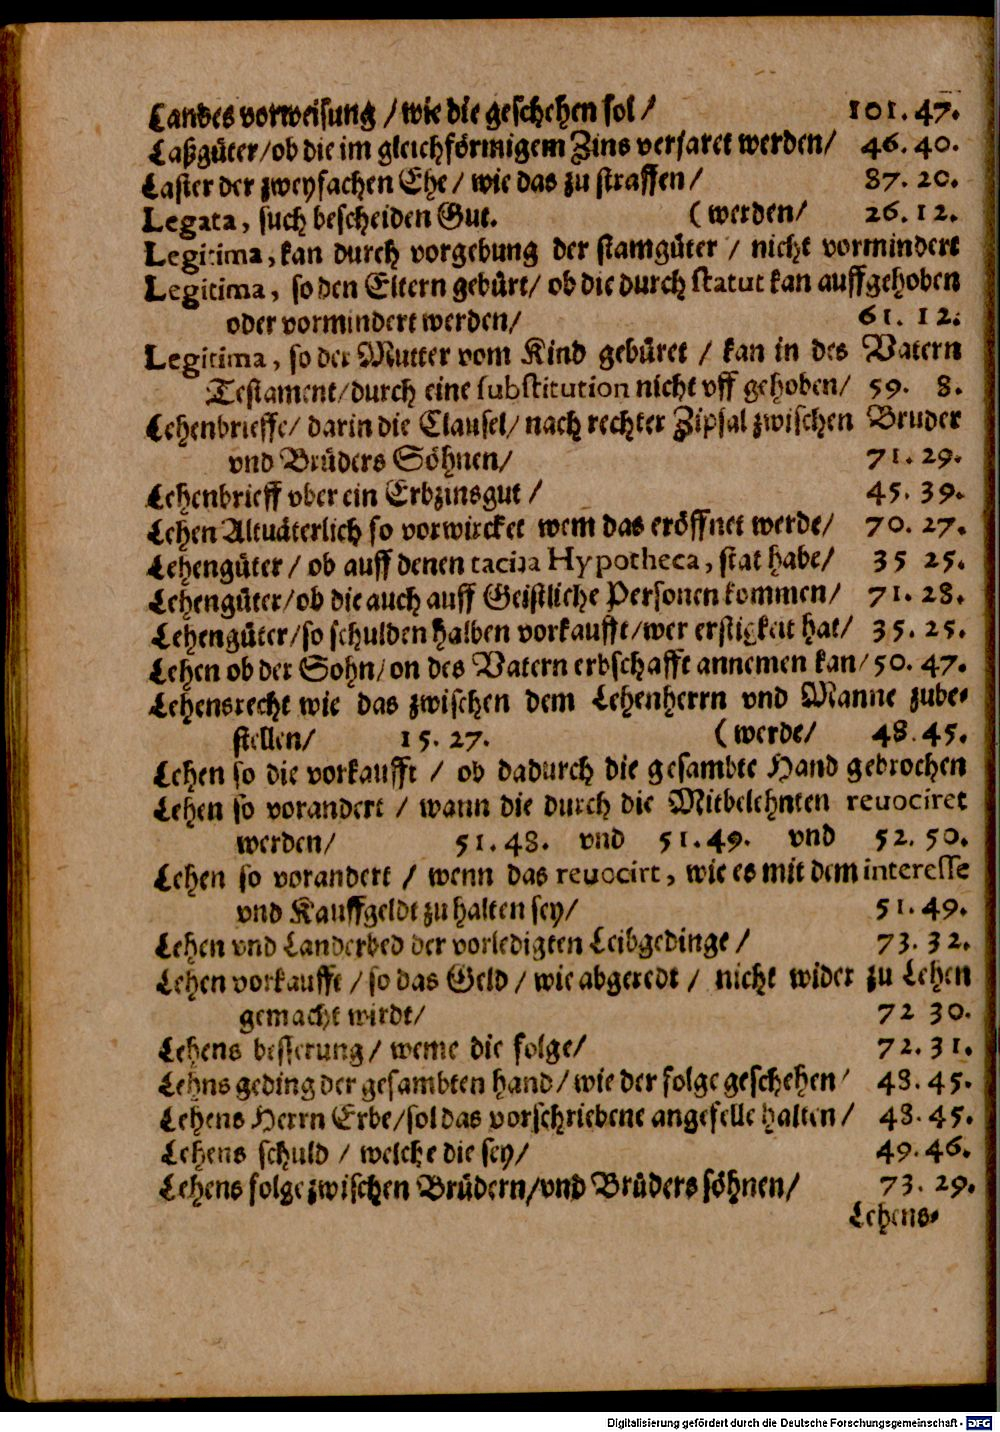 Landes vorweisung / wie die geschehen sol / 101. 47.
Laßgüter / ob die im gleichförmigem Zins versaret werden / 46. 40.
Laster der zweyfachen Ehe / wie das zu straffen / 87. 20.
Legata, such bescheiden Gut. ( werden / 26. 12.
Legitima, kan durch vorgebung der stamgüter / nicht vormindert
Legitima, so den Eltern gebürt / ob die durch statut kan auffgehoben
oder vormindert werden / 61. 12.
Legitima, so der Mutter vom Kind gebüret / kan in des Vatern
Testament / durch eine substitution nicht vff gehoben / 59. 8.
Lehenbrieffe / darin die Clausel / nach rechter Zipsal zwischen Bruder
vnd Brüders Söhnen / 71. 29.
Lehenbrieff vber ein Erbzinsgut / 45. 39.
Lehen Altuäterlich so vorwircket wem das eröffnet werde / 70. 27.
Lehengüter / ob auff denen tacita Hypotheca, stat habe / 35 25.
Lehengüter / ob die auch auff Geistliche Personen kommen / 71. 28.
Lehengüter / so schulden halben vorkaufft / wer erstigkeit hat / 35. 25.
Lehen ob der Sohn / on des Vatern erbschafft annemen kan / 50. 47.
Lehensrecht wie das zwischen dem Lehenherrn vnd Manne zube-
stellen / 15. 27. ( werde / 48. 45.
Lehen so die vorkaufft / ob dadurch die gesambte Hand gebrochen
Lehen so vorandert / wann die durch die Mitbelehnten reuociret
werden / 51. 48. vnd 51. 49. vnd 52. 50.
Lehen so vorandert / wenn das reuocirt, wie es mit dem interesse
vnd Kauffgeldt zu halten sey / 51. 49.
Lehen vnd Landerbed der vorledigten Leibgedinge / 73. 32.
Lehen vorkaufft / so das Geld / wie abgeredt / nicht wider zu Lehen
gemacht wirdt / 72 30.
Lehens besserung / weme die folge / 72. 31.
Lehns geding der gesambten hand / wie der folge geschehen / 48. 45.
Lehens Herrn Erbe / sol das vorschriebene angefelle halten / 48. 45.
Lehens schuld / welche die sey / 49. 46.
Lehens folge zwischen Brüdern / vnd Brüders söhnen / 73. 29.
Lehens-
Digitalisierung gefördert durch die Deutsche Forschungsgemeinschaft - DFG